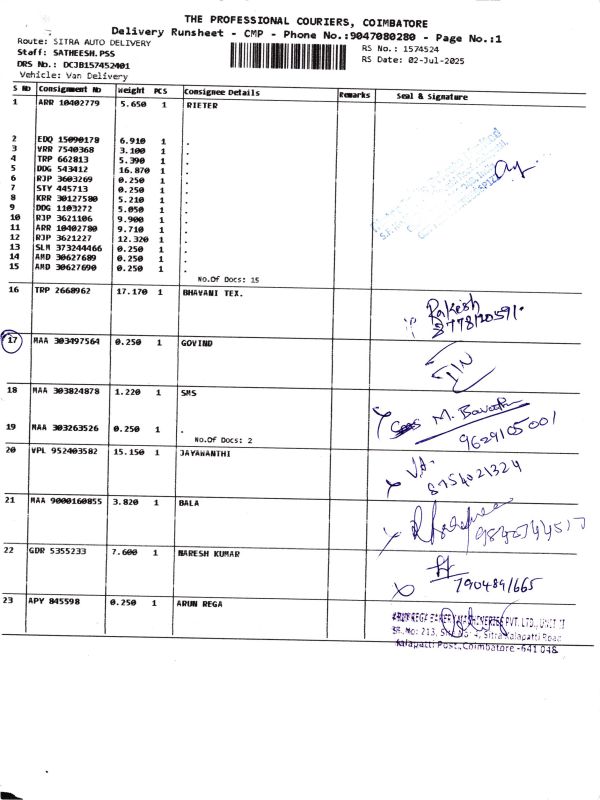 THE PROFESSIONAL COURIERS, COIMBATORE
Delivery Runsheet - CMP - Phone No.:9047080280 - Page No.:1
Route: SITRA AUTO DELIVERY
RS No.: 1574524
Staff: SATHEESH.PSS
RS Date: 02-Jul-2025
DRS No.: DCJB157452401
Vehicle: Van Delivery
S No Consignment No Weight PCS Consignee Details Remarks Seal & Signature
1 ARR 10402779 5.650 1 RIETER
2 EDQ 15090178 6.910 1 .
3 VRR 7540368 3.100 1 .
4 TRP 662813 5.390 1 .
5 DDG 543412 16.870 1 .
6 RJP 3603269 0.250 1 .
7 STY 445713 0.250 1 .
8 KRR 30127580 5.210 1 .
9 DDG 1103272 5.050 1 .
10 RJP 3621106 9.900 1 .
11 ARR 10402780 9.710 1 .
12 RJP 3621227 12.320 1 .
13 SLM 373244466 0.250 1 .
14 AMD 30627689 0.250 1 .
15 AMD 30627690 0.250 1 .
No.Of Docs: 15
16 TRP 2668962 17.170 1 BHAVANI TEX.
Rakesh
17 MAA 303497564 0.250 1 GOVIND
18 MAA 303824878 1.220 1 SMS
M.
19 MAA 303263526 0.250 1 .
9629105001
No.Of Docs: 2
20 VPL 952403582 15.150 1 JAYAWANTHI
8754021324
21 MAA 9000160855 3.820 1 BALA
22 GDR 5355233 7.600 1 NARESH KUMAR
7904891665
23 APY 845598 0.250 1 ARUN REGA
PVT. LTD., UNIT II
SF. No: 213, Site No: 4, Sitra Kalapatti Road
Kalapatti Post., Coimbatore - 641 048